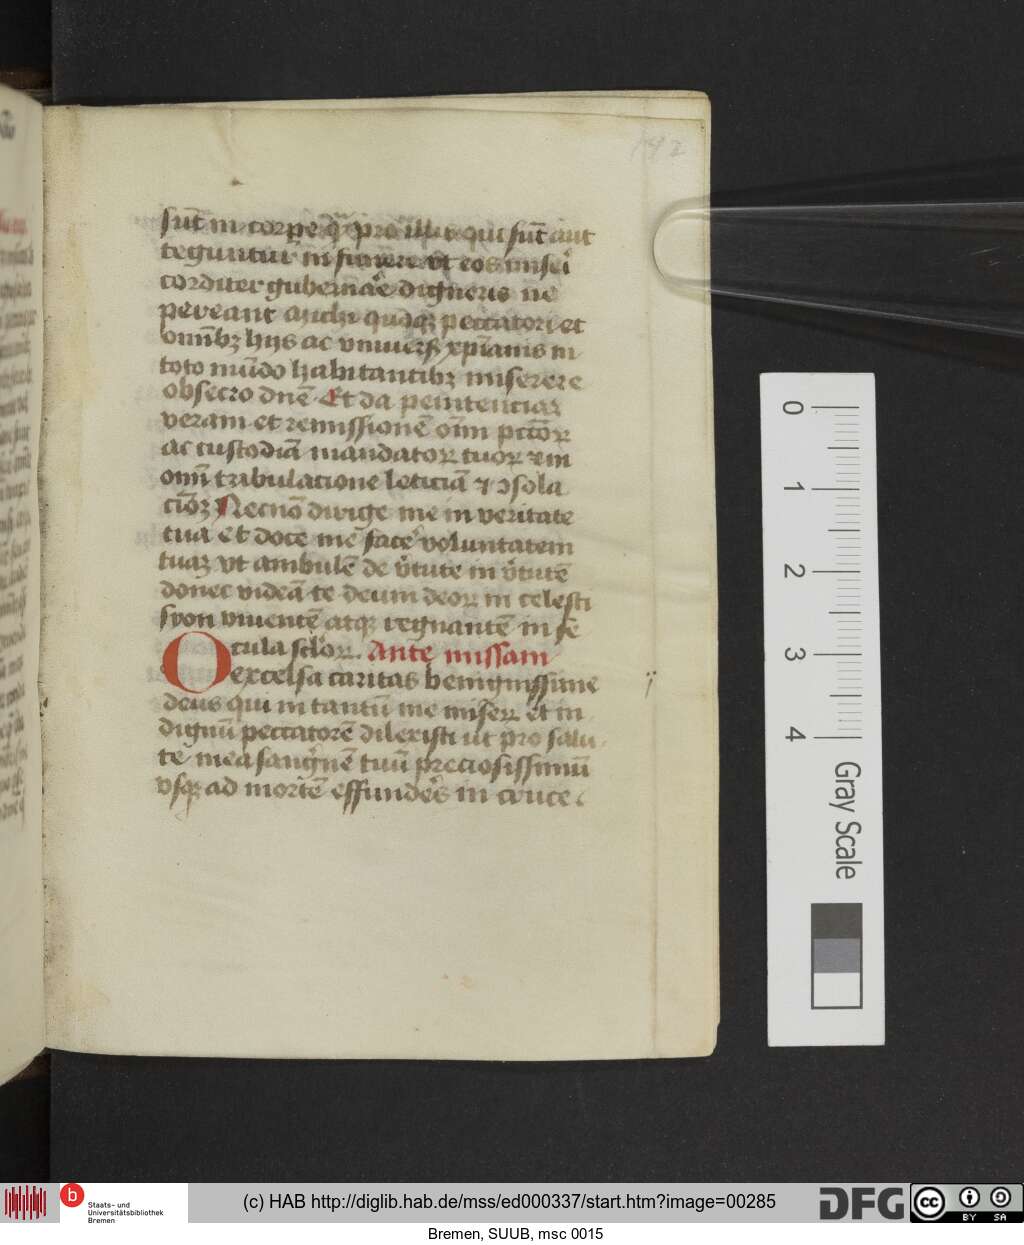 142
sut̄ in corpe q̄ pro illis qui sūt aut
teguntur in funere vt eos misei
corditer gubernāe digneris ne
pereant Michi quoqꝫ peccatori et
omībꝫ hijs ac vniuersꝭ xp̄ianis in
toto mūdo habitantibꝫ miserere
obsecro dn̄e Et da penitenciaꝫ
veram et remissionē oīm pctōꝝ
ac custodiā mandatoꝝ tuoꝝ ⁊ in
omī tribulacione leticiā ⁊ ↄsola
ciōꝫ Necnō dirige me in veritate
tua Et doce me face᷑ voluntatem
tuaꝫ vt ambulē de v̄tute in v̄tutē
donec videā te deum deoꝝ in celesti
syon viuentē atqꝫ regnantē in se
cula sclōꝝ. Ante missam
O excelsa caritas benignissime
deus qui in tantū me miseꝝ et in
dignū peccatorē dilexisti ut pro salu
te mea sanguinē tuū preciosissimū
vsqꝫ ad mortē effunderes in cruce
0
1
2
3
4
Gray Scale
b
Staats- und
Universitätsbibliothek
Bremen
(c) HAB http://diglib.hab.de/mss/ed000337/start.htm?image=00285
DFG
cc BY SA
Bremen, SUUB, msc 0015